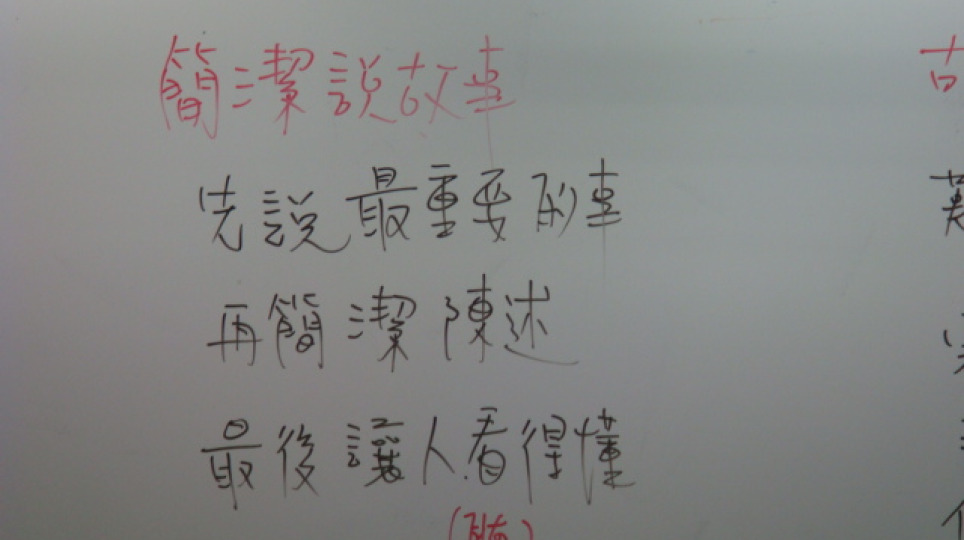 簡潔說故事
先說最重要的事
再簡潔陳述
最後讓人看得懂